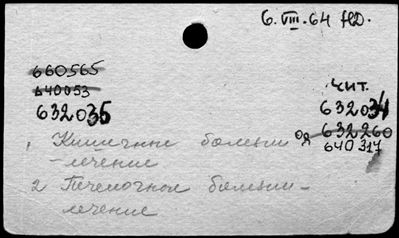 6.VIII.64
660565
640053
632035
Чит.
632034
632260
640317
1. Кишечные болезни
- лечение
2 Печеночные болезни -
лечение